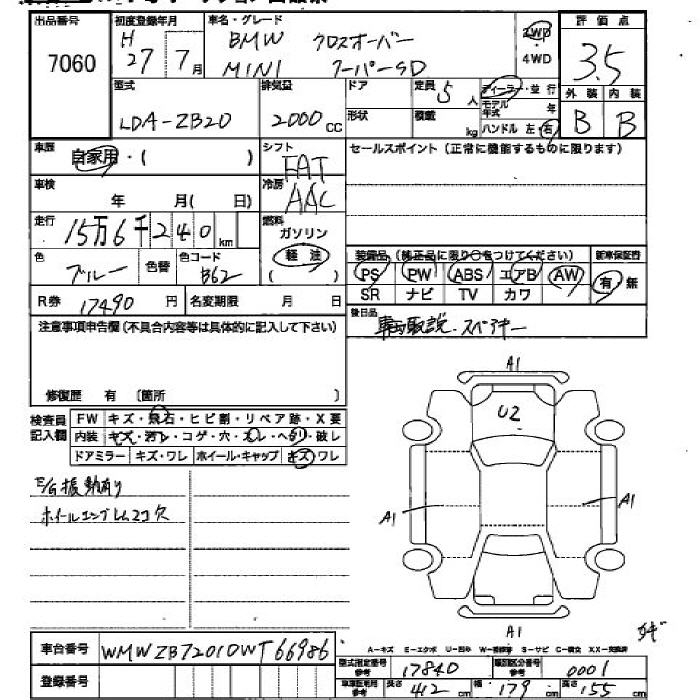 出品番号 初度登録年月 車名・グレード 2WD 評価点
7060 H 27年 7月 BMW クロスオーバー 4WD 3.5
MINI クーパーSD
型式 排気量 ドア 定員 5人 ディーラー・並行 外装 内装
LDA-ZB20 2000cc 形状 積載 kg モデル年式 年 B B
ハンドル 左 右
車歴 自家用・( ) シフト FAT セールスポイント(正常に機能するものに限ります)
車検 年 月( 日) 冷房 AAC
走行 15万6千240km 燃料 ガソリン
色 ブルー 色替 色コード B62 軽油 ( )
装備品(純正品に限り○をつけてください) 新車保証書
PS PW ABS エアB AW 有 無
SR ナビ TV カワ
R券 17490円 名変期限 月 日
後日品
取説・スペアキー
注意事項申告欄(不具合内容等は具体的に記入して下さい)
修復歴 有 〔箇所 〕
検査員記入欄 FW キズ・飛石・ヒビ割・リペア跡・X要
内装 キズ・汚レ・コゲ・穴・スレ・ヘタリ・破レ
ドアミラー キズ・ワレ ホイール・キャップ キズ ワレ
E/G振動有り
ホイールエンブレム2コ欠
A1
U2
A1
A1
A1
A-キズ E-エクボ U-凹み W-補修跡 S-サビ C-腐食 XX-交換済
カギ
車台番号 WMWZB72010WT66986
登録番号
型式指定番号 参考 17840 類別区分番号 参考 0001
車庫証明用 参考 長さ 412cm 幅 179cm 高さ 155cm